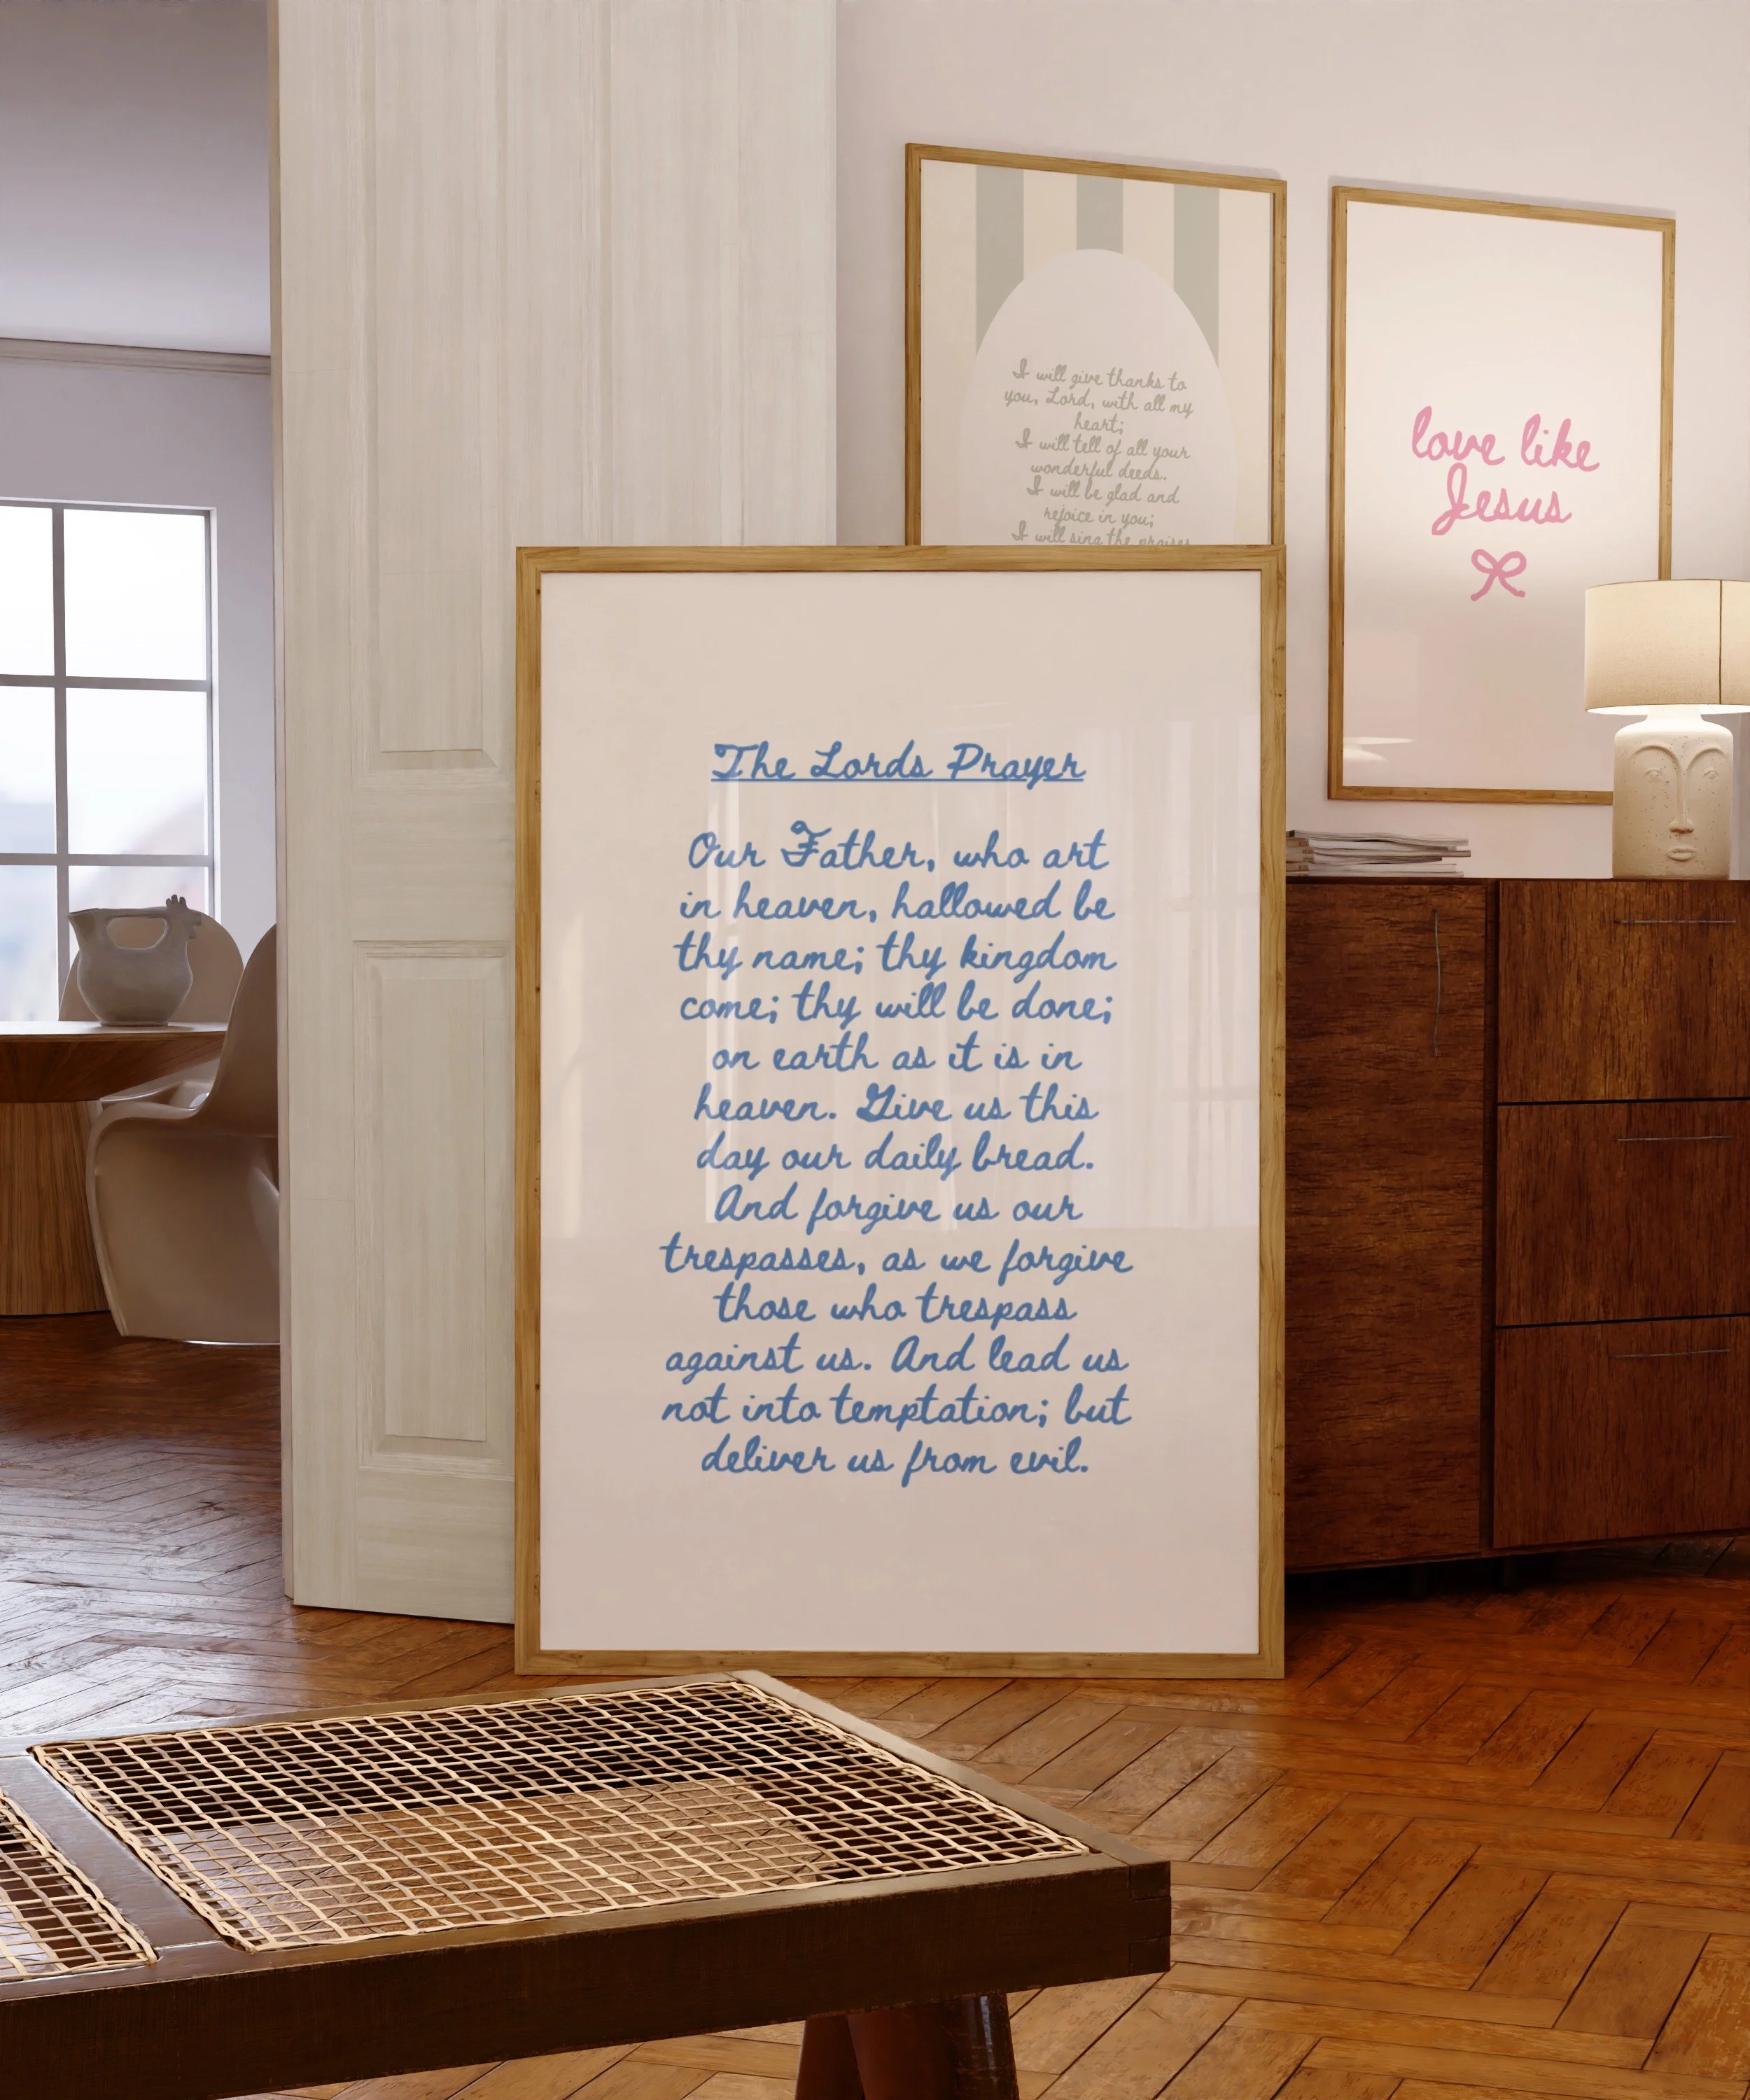 I will give thanks to
you, Lord, with all my
heart;
I will tell of all your
wonderful deeds.
I will be glad and
rejoice in you;
I will sing the praises
love like
Jesus
The Lords Prayer
Our Father, who art
in heaven, hallowed be
thy name; thy kingdom
come; thy will be done;
on earth as it is in
heaven. Give us this
day our daily bread.
And forgive us our
trespasses, as we forgive
those who trespass
against us. And lead us
not into temptation; but
deliver us from evil.